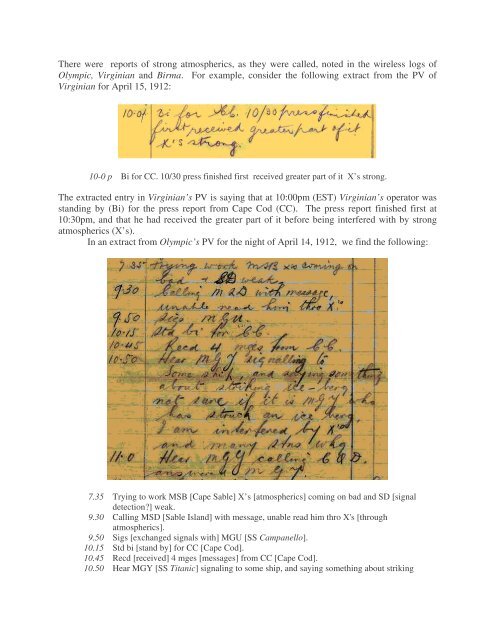 There were reports of strong atmospherics, as they were called, noted in the wireless logs of
Olympic, Virginian and Birma. For example, consider the following extract from the PV of
Virginian for April 15, 1912:
10-0p Bi for CC. 10/30 press finished
first received greater part of it
X's strong.
10-0 p Bi for CC. 10/30 press finished first received greater part of it X's strong.
The extracted entry in Virginian's PV is saying that at 10:00pm (EST) Virginian's operator was
standing by (Bi) for the press report from Cape Cod (CC). The press report finished first at
10:30pm, and that he had received the greater part of it before being interfered with by strong
atmospherics (X's).
In an extract from Olympic's PV for the night of April 14, 1912, we find the following:
7.35 Trying to work MSB X's coming on
bad & SD weak.
9.30 Calling MSD with message,
unable read him thro X's
9.50 Sigs MGU.
10.15 Std bi for CC.
10.45 Recd 4 mges from CC.
10.50 Hear MGY signalling to
some ship, and saying something
about striking ice-berg
not sure if it is MGY who
has struck an ice berg,
I am interfered by X's
and many stns wkg
11.0 Hear MGY calling C.Q.D.
answered MGY.
7.35 Trying to work MSB [Cape Sable] X's [atmospherics] coming on bad and SD [signal
detection?] weak.
9.30 Calling MSD [Sable Island] with message, unable read him thro X's [through
atmospherics].
9.50 Sigs [exchanged signals with] MGU [SS Campanello].
10.15 Std bi [stand by] for CC [Cape Cod].
10.45 Recd [received] 4 mges [messages] from CC [Cape Cod].
10.50 Hear MGY [SS Titanic] signaling to some ship, and saying something about striking